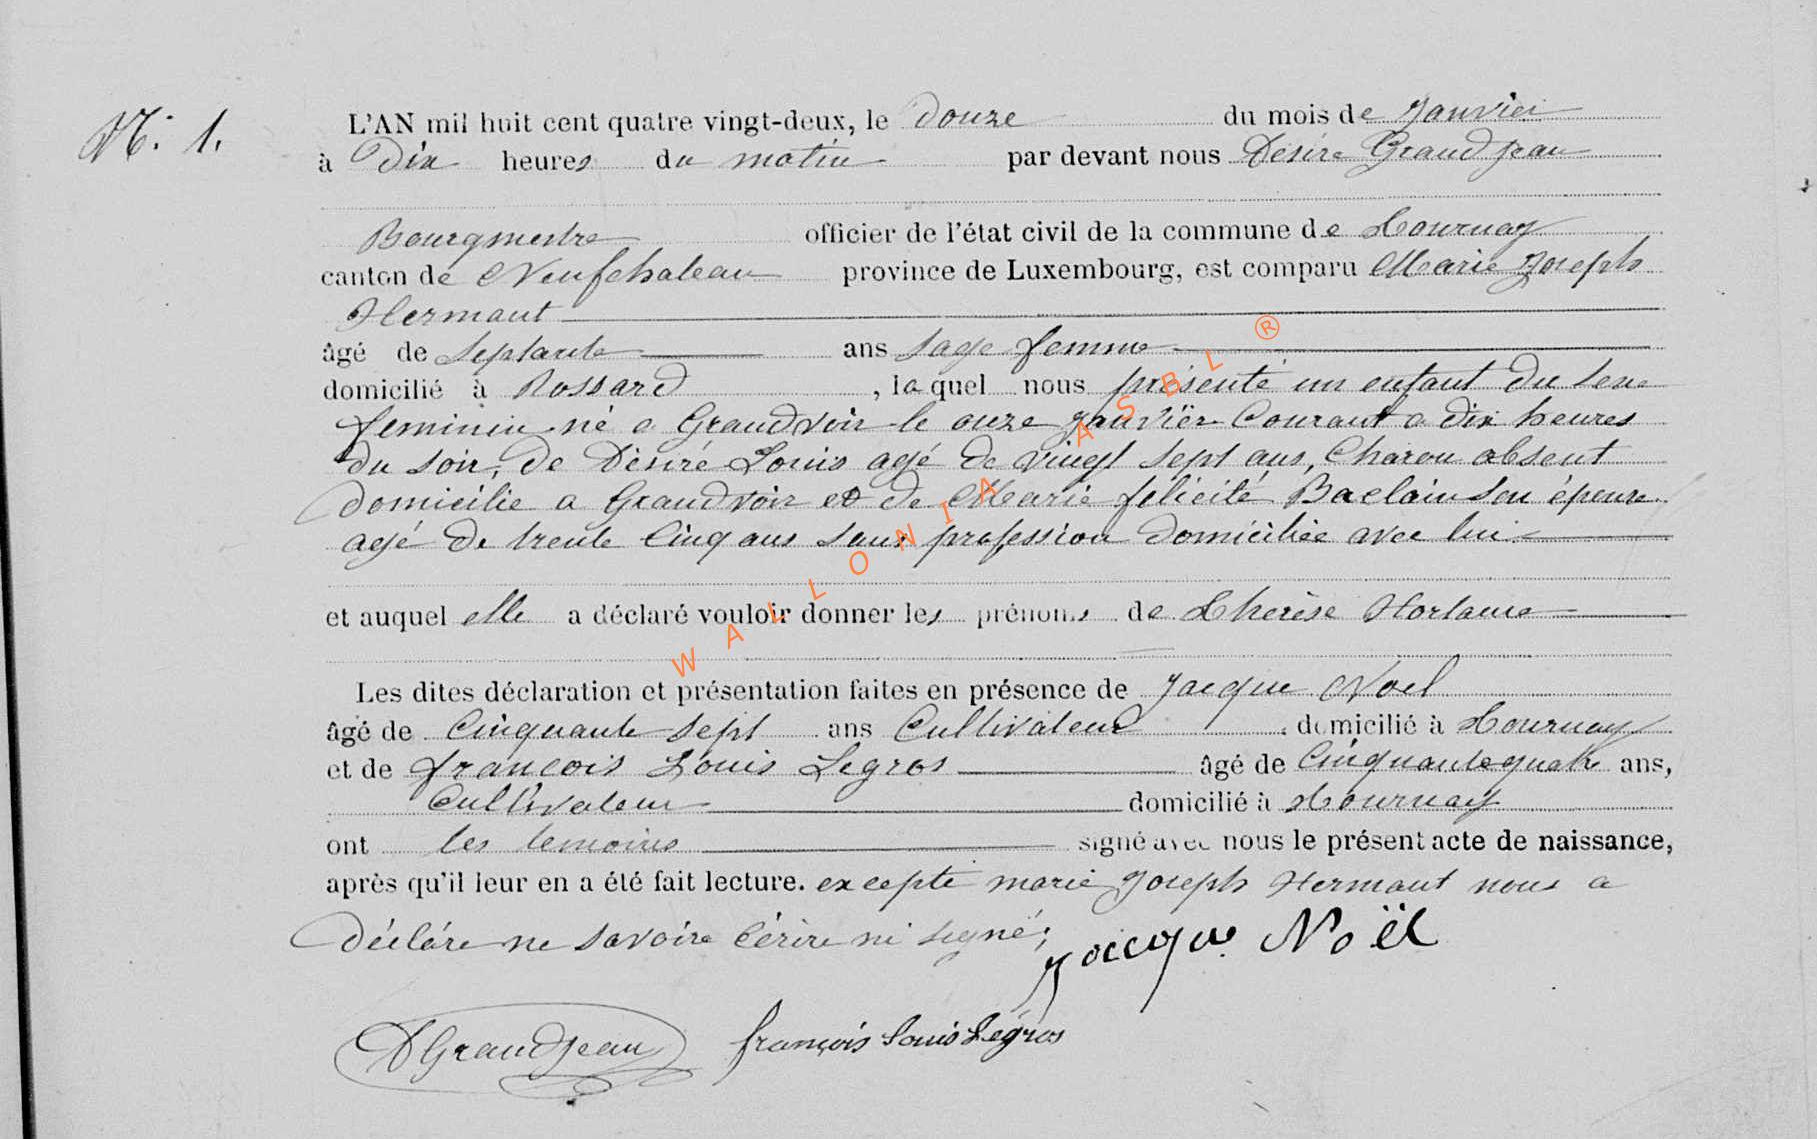 N: 1.
L'AN mil huit cent quatre vingt-deux, le Douze du mois de Janvier
à Dix heures du matin par devant nous Désiré Grandjean
Bourgmestre officier de l'état civil de la commune de Tournay
canton de Neufchateau province de Luxembourg, est comparu Marie Joseph
Hermant
âgé de Septante ans sage femme
domicilié à Rossard, la quel nous présenté un enfant du sexe
feminin né a Grandvoir le onze janvier Courant a dix heures
du soir, de Désiré Louis agé de vingt sept ans, Charon absent
Domicilie a Grandvoir et de Marie félicité Baclain son épouse
agé de trente Cinq ans sans profession domiciliée avec lui
et auquel elle a déclaré vouloir donner les prénoms de Therèse Hortance
Les dites déclaration et présentation faites en présence de Jacque Noel
âgé de Cinquante sept ans Cultivateur, domicilié à Tournay
et de francois Louis Legros âgé de Cinquante quatre ans,
Cultivateur domicilié à Tournay
ont les temoins signé avec nous le présent acte de naissance,
après qu'il leur en a été fait lecture. excepté marie Joseph Hermant nous a
décláre ne savoire Cérire ni signé;
Jacque Noël
DGrandjean françois Louis Légros
WALLONIA ASBL ®